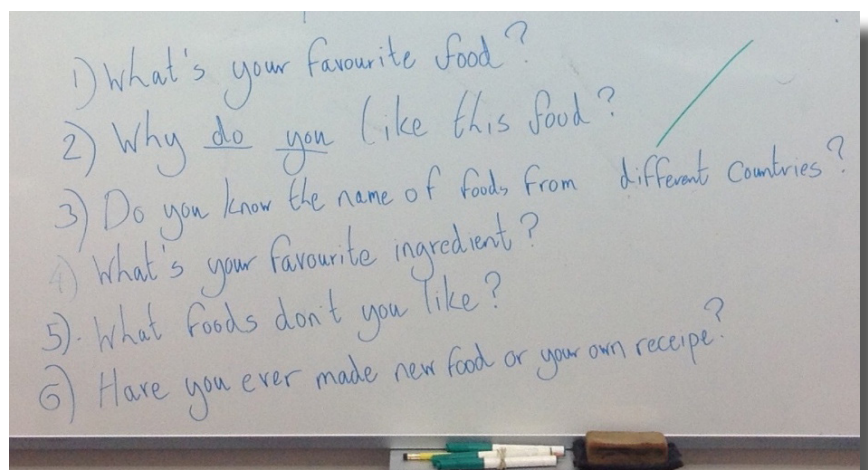 1) What's your favourite food?
2) Why do you like this food?
3) Do you know the name of foods from different countries?
4) What's your favourite ingredient?
5). What foods don't you like?
6) Have you ever made new food or your own receipe?